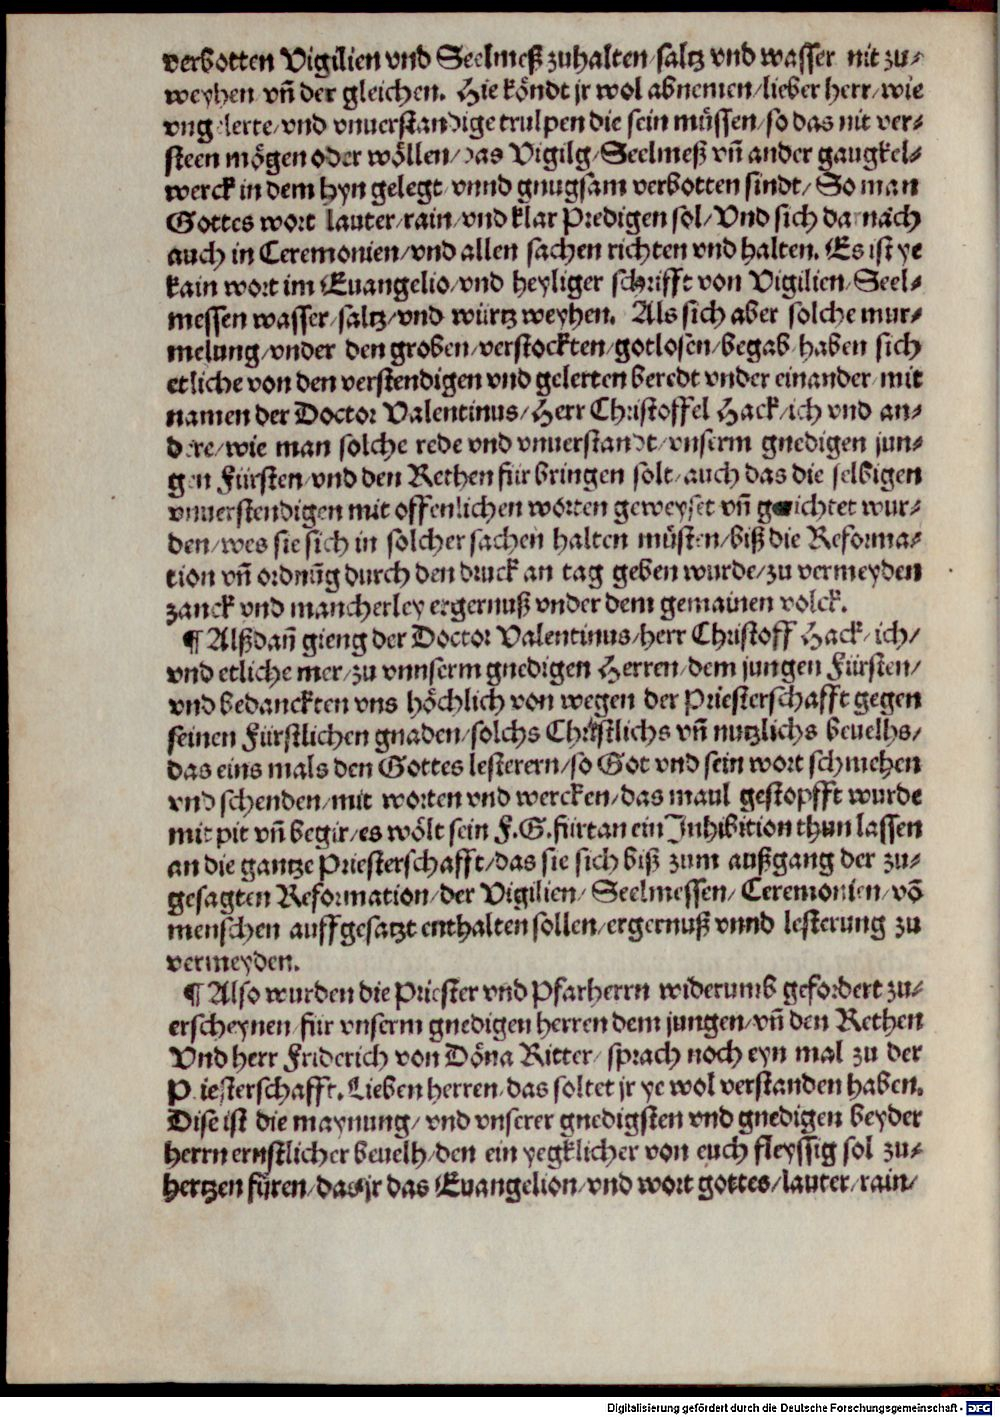 verbotten Vigilien vnd Seelmeß zuhalten/saltz vnd wasser nit zu⸗
weyhen vñ der gleichen. Hie köndt jr wol abnemen/lieber herr/wie
vngelerte/vnd vnuerstandige trulpen die sein müssen/so das nit ver⸗
steen mögen oder wöllen/das Vigilg/Seelmeß vñ ander gaugkel⸗
werck in dem hyn gelegt/vnnd gnugsam verbotten sindt/So man
Gottes wort lauter/rain/vnd klar Predigen sol/Vnd sich darnach
auch in Ceremonien/vnd allen sachen richten vnd halten. Es ist ye
kain wort im Euangelio/vnd heyliger schrifft von Vigilien/Seel⸗
messen wasser/saltz/vnd würtz weyhen. Als sich aber solche mur⸗
melung/vnder den groben/verstockten/gotlosen/begab/haben sich
etliche von den verstendigen vnd gelerten beredt vnder einander/mit
namen der Doctor Valentinus/Herr Christoffel Hack/ich vnd an⸗
dere/wie man solche rede vnd vnuerstandt/vnserm gnedigen jun⸗
gen Fürsten/vnd den Rethen für bringen solt/auch das die selbigen
vnuerstendigen mit offenlichen worten geweyset vñ gerichtet wur⸗
den/wes sie sich in solcher sachen halten müsten/biß die Reforma⸗
tion vñ ordnũg durch den druck an tag geben wurde/zu vermeyden
zanck vnd mancherley ergernuß vnder dem gemainen volck.
¶ Alßdañ gieng der Doctor Valentinus/herr Christoff Hack/ich/
vnd etliche mer/zu vnnserm gnedigen Herren/dem jungen Fürsten/
vnd bedanckten vns höchlich von wegen der Priesterschafft gegen
seinen Fürstlichen gnaden/solchs Christlichs vñ nutzlichs beuelhs/
das eins mals den Gottes lesterern/so Got vnd sein wort schmehen
vnd schenden/mit worten vnd wercken/das maul gestopfft wurde
mit pit vñ begir/es wölt sein F.G. fürtan ein Inhibition thun lassen
an die gantze Priesterschafft/das sie sich biß zum außgang der zu⸗
gesagten Reformation/der Vigilien/Seelmessen/Ceremonien/võ
menschen auffgesatzt enthalten sollen/ergernuß vnnd lesterung zu
vermeyden.
¶ Also wurden die Priester vnd Pfarherrn widerumb gefordert zu⸗
erscheynen/für vnserm gnedigen herren dem jungen/vñ den Rethen
Vnd herr Friderich von Döna Ritter/sprach noch eyn mal zu der
Priesterschafft. Lieben herren/das soltet jr ye wol verstanden haben.
Dise ist die maynung/vnd vnserer gnedigsten vnd gnedigen beyder
herrn ernstlicher beuelh/den ein yegklicher von euch fleyssig sol zu⸗
hertzen füren/das jr das Euangelion/vnd wort gottes/lauter/rain/
Digitalisierung gefördert durch die Deutsche Forschungsgemeinschaft - DFG